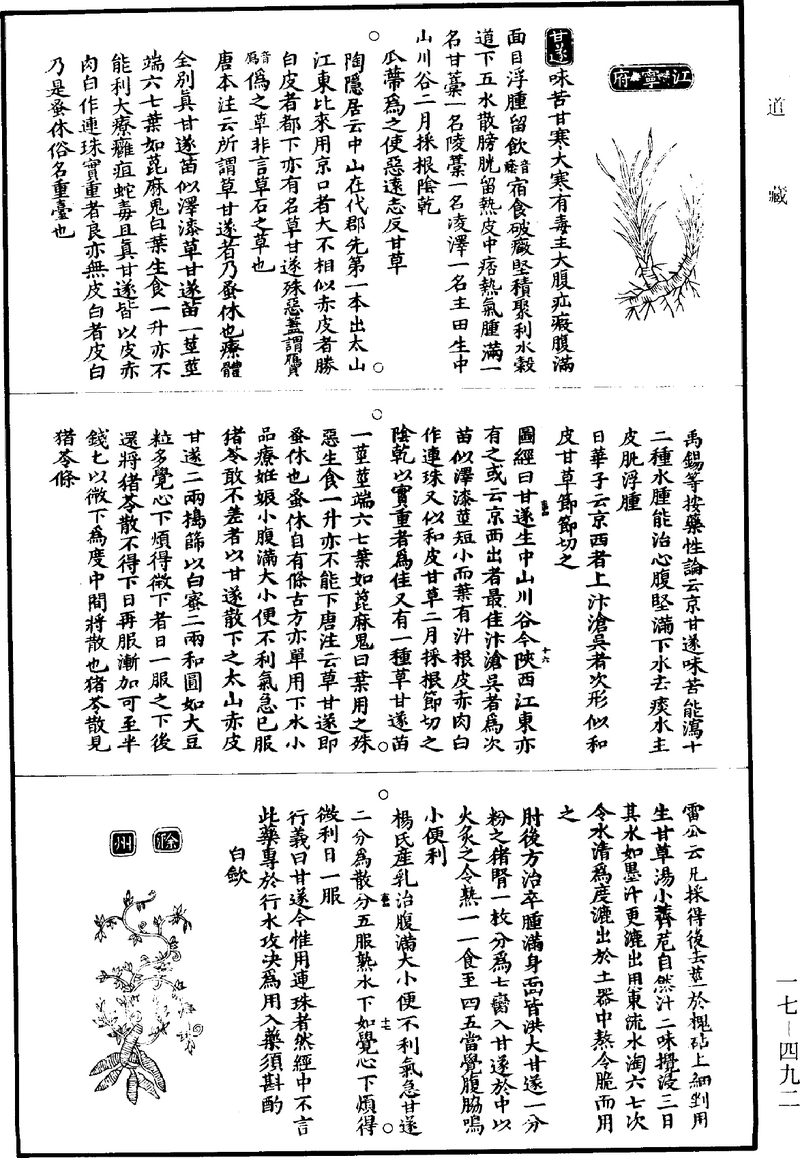 道藏
江寧府
甘遂味苦甘寒大寒有毒主大腹疝瘕腹滿
面目浮腫留飲音蔭宿食破癥堅積聚利水穀
道下五水散膀胱留熱皮中痞熱氣腫滿一
名甘藁一名陵藁一名凌澤一名主田生中
山川谷二月採根陰乾
瓜蔕爲之使惡遠志反甘草
陶隱居云中山在代郡先第一本出太山
江東比來用京口者大不相似赤皮者勝
白皮者都下亦有名草甘遂殊惡蓋謂贗
音鴈僞之草非言草石之草也
唐本注云所謂草甘遂者乃蚤休也療體
全別眞甘遂苗似澤漆草甘遂苗一莖莖
端六七葉如蓖麻鬼臼葉生食一升亦不
能利大療癰疽蛇毒且眞甘遂皆以皮赤
肉白作連珠實重者良亦無皮白者皮白
乃是蚤休俗名重臺也
禹錫等按藥性論云京甘遂味苦能瀉十
二種水腫能治心腹堅滿下水去痰水主
皮肌浮腫
日華子云京西者上汴滄吳者次形似和
皮甘草節節切之
圖經曰甘遂生中山川谷今陝西江東亦
有之或云京西出者最佳汴滄吳者爲次
苗似澤漆莖短小而葉有汁根皮赤肉白
作連珠又似和皮甘草二月採根節切之
陰乾以實重者爲佳又有一種草甘遂苗
一莖莖端六七葉如蓖麻鬼臼葉用之殊
惡生食一升亦不能下唐注云草甘遂即
蚤休也蚤休自有條古方亦單用下水小
品療妊娠小腹滿大小便不利氣急已服
猪苓散不差者以甘遂散下之太山赤皮
甘遂二兩擣篩以白蜜二兩和圓如大豆
粒多覺心下煩得微下者日一服之下後
還將猪苓散不得下日再服漸加可至半
錢匕以微下爲度中間將散也猪苓散見
猪苓條
雷公云凡採得後去莖於槐砧上細剉用
生甘草湯小薺苨自然汁二味攪浸三日
其水如墨汁更漉出用東流水淘六七次
令水清爲度漉出於土器中熬令脆而用
之
肘後方治卒腫滿身面皆洪大甘遂一分
粉之猪腎一枚分爲七臠入甘遂於中以
火炙之令熟一一食至四五當覺腹脇鳴
小便利
楊氏產乳治腹滿大小便不利氣急甘遂
二分爲散分五服熟水下如覺心下煩得
微利日一服
衍義曰甘遂今惟用連珠者然經中不言
此藥專於行水攻决爲用入藥須斟酌
白歛
滁州
一七－四九二